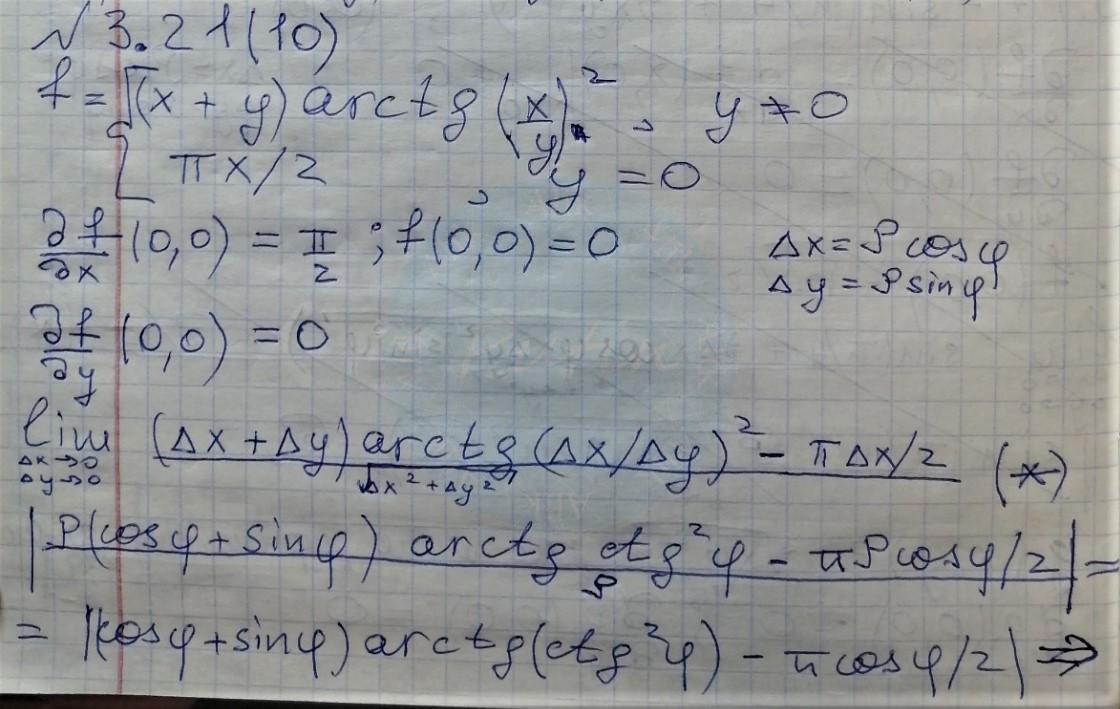 № 3.21(10)
f = { (x + y) arctg (x/y)², y ≠ 0
πx/2, y = 0
∂f/∂x (0,0) = π/2 ; f(0,0) = 0
Δx = ρ cos φ
Δy = ρ sin φ
∂f/∂y (0,0) = 0
lim Δx→0 Δy→0 ((Δx + Δy) arctg (Δx/Δy)² - πΔx/2) / √(Δx² + Δy²) (*)
|(ρ(cos φ + sin φ) arctg ctg²φ - πρ cos φ/2) / ρ| =
= |(cos φ + sin φ) arctg(ctg²φ) - π cos φ/2| ⇒